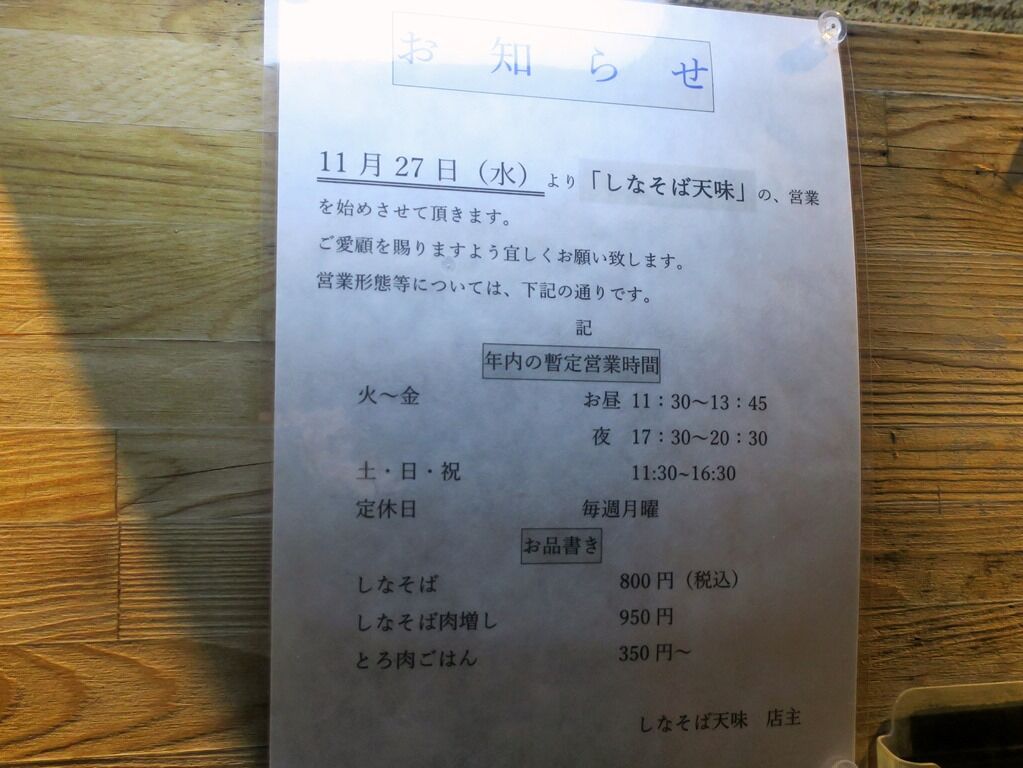 お知らせ
11月27日（水）より「しなそば天味」の、営業
を始めさせて頂きます。
ご愛顧を賜りますよう宜しくお願い致します。
営業形態等については、下記の通りです。
記
年内の暫定営業時間
火～金 お昼 11：30～13：45
夜 17：30～20：30
土・日・祝 11:30~16:30
定休日 毎週月曜
お品書き
しなそば 800円（税込）
しなそば肉増し 950円
とろ肉ごはん 350円～
しなそば天味 店主